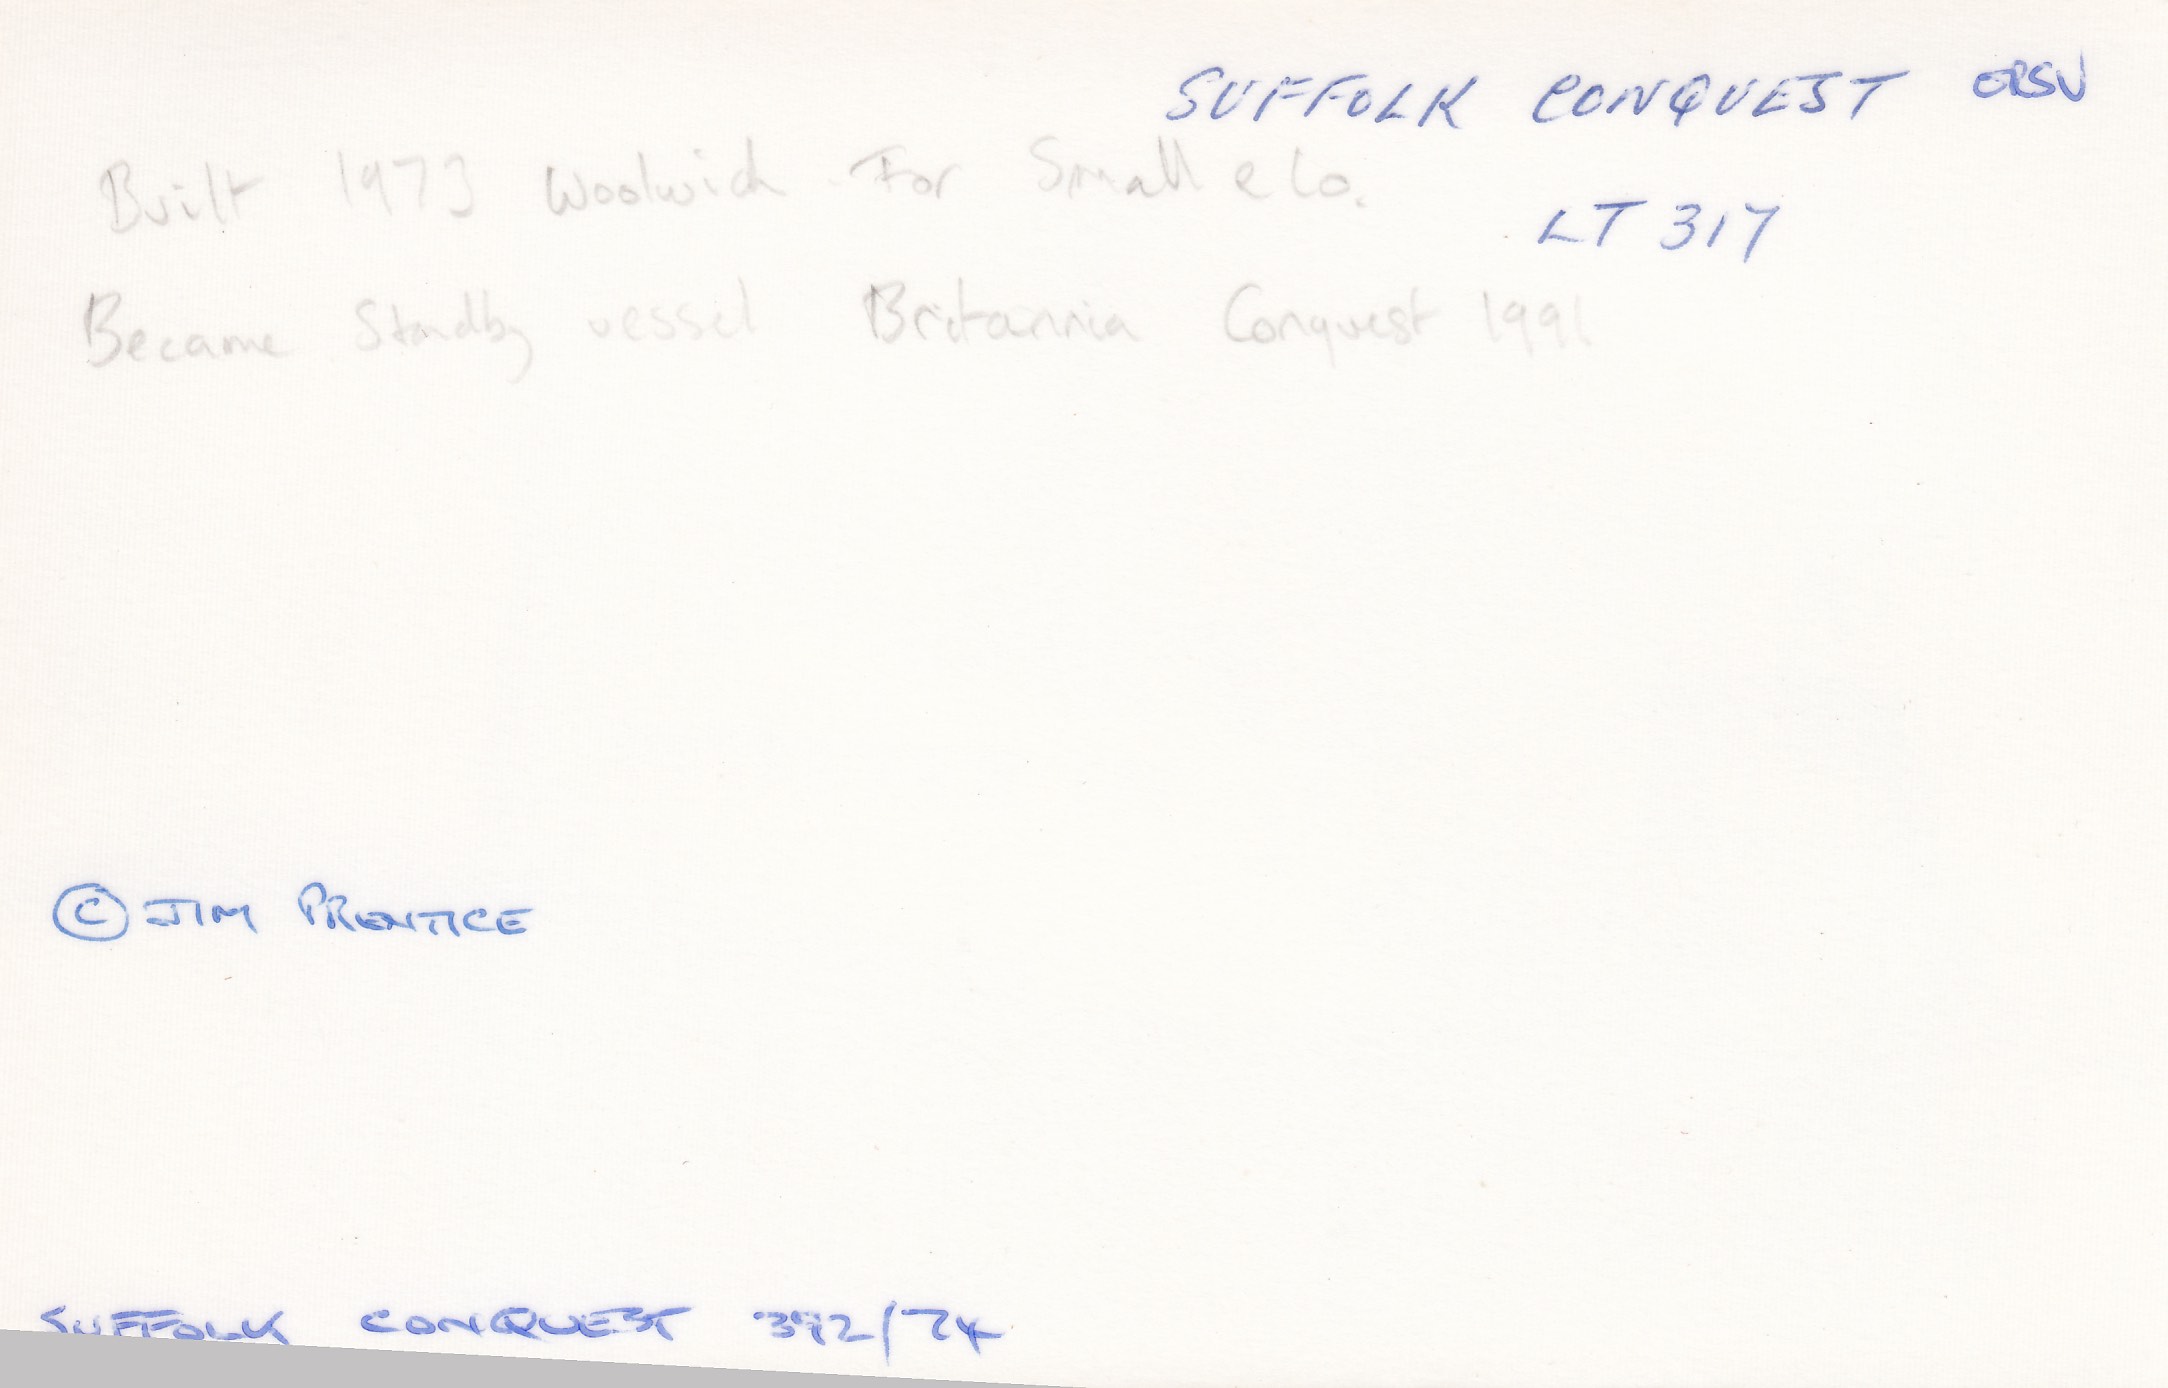 SUFFOLK CONQUEST ERSV
Built 1973 Woolwich For Small & Co.
LT 317
Became Standby vessel Britannia Conquest 1991
© JIM PRENTICE
SUFFOLK CONQUEST 392/74